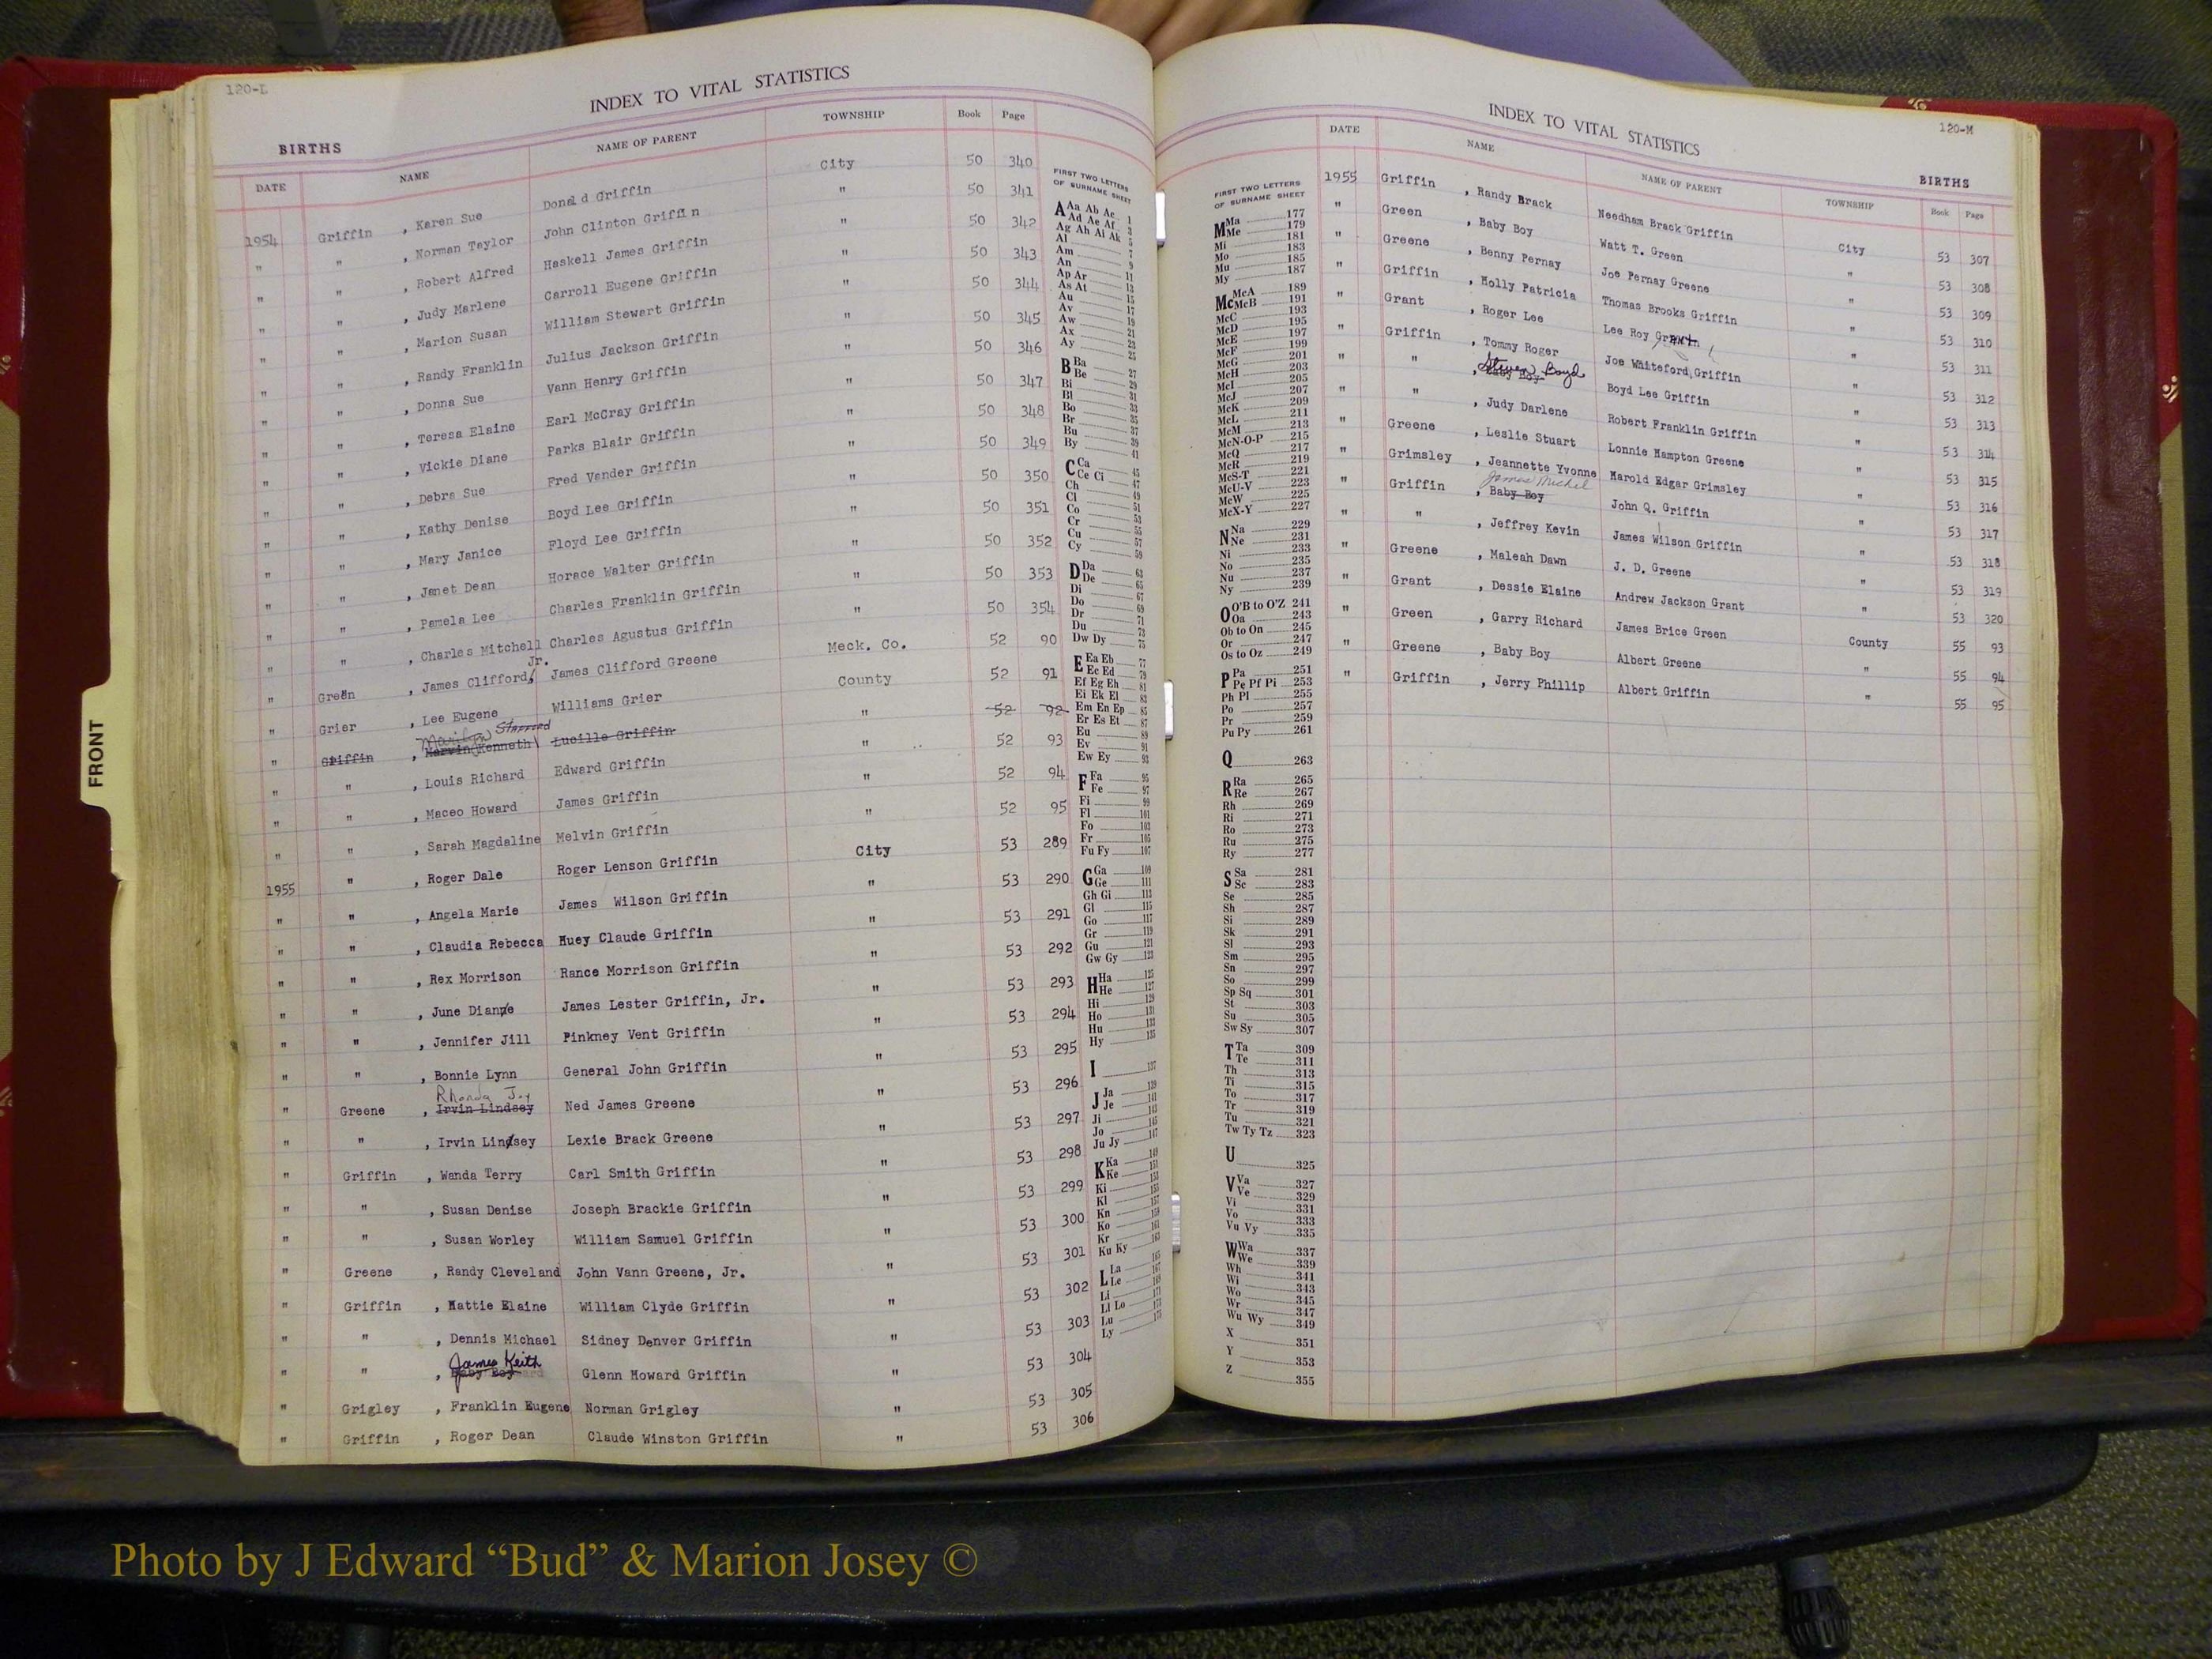 120-L
INDEX TO VITAL STATISTICS
BIRTHS
DATE NAME NAME OF PARENT TOWNSHIP Book Page
1954 Griffin , Karen Sue Donald Griffin City 50 340
" " , Norman Taylor John Clinton Griffin " 50 341
" " , Robert Alfred Haskell James Griffin " 50 342
" " , Judy Marlene Carroll Eugene Griffin " 50 343
" " , Marion Susan William Stewart Griffin " 50 344
" " , Randy Franklin Julius Jackson Griffin " 50 345
" " , Donna Sue Vann Henry Griffin " 50 346
" " , Teresa Elaine Earl McCray Griffin " 50 347
" " , Vickie Diane Parks Blair Griffin " 50 348
" " , Debra Sue Fred Vander Griffin " 50 349
" " , Kathy Denise Boyd Lee Griffin " 50 350
" " , Mary Janice Floyd Lee Griffin " 50 351
" " , Janet Dean Horace Walter Griffin " 50 352
" " , Pamela Lee Charles Franklin Griffin " 50 353
" " , Charles Mitchell Charles Agustus Griffin " 50 354
" Green , James Clifford, Jr. James Clifford Greene Meck. Co. 52 90
" Grier , Lee Eugene Williams Grier County 52 91
" Griffin , Marvin Kenneth Lucille Griffin " 52 92
" " , Louis Richard Edward Griffin " 52 93
" " , Maceo Howard James Griffin " 52 94
" " , Sarah Magdaline Melvin Griffin " 52 95
1955 " , Roger Dale Roger Lenson Griffin City 53 289
" " , Angela Marie James Wilson Griffin " 53 290
" " , Claudia Rebecca Huey Claude Griffin " 53 291
" " , Rex Morrison Rance Morrison Griffin " 53 292
" " , June Diane James Lester Griffin, Jr. " 53 293
" " , Jennifer Jill Pinkney Vent Griffin " 53 294
" " , Bonnie Lynn General John Griffin " 53 295
Rhonda Joy
" Greene , Irvin Lindsey Ned James Greene " 53 296
" " , Irvin Lindsey Lexie Brack Greene " 53 297
" Griffin , Wanda Terry Carl Smith Griffin " 53 298
" " , Susan Denise Joseph Brackie Griffin " 53 299
" " , Susan Worley William Samuel Griffin " 53 300
" Greene , Randy Cleveland John Vann Greene, Jr. " 53 301
" Griffin , Hattie Elaine William Clyde Griffin " 53 302
" " , Dennis Michael Sidney Denver Griffin " 53 303
James Keith
" " , Baby Boy Glenn Howard Griffin " 53 304
" Grigley , Franklin Eugene Norman Grigley " 53 305
" Griffin , Roger Dean Claude Winston Griffin " 53 306
FRONT
FIRST TWO LETTERS
OF SURNAME SHEET
A Aa Ab Ac 1
Ad Ae Af 3
Ag Ah Ai Ak 5
Al 7
Am 9
An
Ap Ar 11
As At 13
Au 15
Av 17
Aw 19
Ax 21
Ay 23
25
B Ba 27
Be 29
Bi 31
Bl 33
Bo 35
Br 37
Bu 39
By 41
C Ca 45
Ce Ci 47
Ch 49
Cl 51
Co 53
Cr 55
Cu 57
Cy 59
D Da 63
De 65
Di 67
Do 69
Dr 71
Du 73
Dw Dy 75
E Ea Eb 77
Ec Ed 79
Ef Eg Eh 81
Ei Ek El 83
Em En Ep 85
Er Es Et 87
Eu 89
Ev 91
Ew Ey 93
F Fa 95
Fe 97
Fi 99
Fl 101
Fo 103
Fr 105
Fu Fy 107
G Ga 109
Ge 111
Gh Gi 113
Gl 115
Go 117
Gr 119
Gu 121
Gw Gy 123
H Ha 125
He 127
Hi 129
Ho 131
Hu 133
Hy 135
I 137
J Ja 139
Je 141
Ji 143
Jo 145
Ju Jy 147
K Ka 149
Ke 151
Ki 153
Kl 155
Kn 157
Ko 159
Kr 161
Ku Ky 163
L La 165
Le 167
Li 169
Ll Lo 171
Lu 173
Ly 175
120-M
INDEX TO VITAL STATISTICS
BIRTHS
DATE NAME NAME OF PARENT TOWNSHIP Book Page
1955 Griffin , Randy Brack Needham Brack Griffin City 53 307
" Green , Baby Boy Watt T. Green " 53 308
" Greene , Benny Pernay Joe Pernay Greene " 53 309
" Griffin , Holly Patricia Thomas Brooks Griffin " 53 310
" Grant , Roger Lee Lee Roy Grant " 53 311
" Griffin , Tommy Roger Joe Whiteford Griffin " 53 312
Steven Boyd
" " , Baby Boy Boyd Lee Griffin " 53 313
" " , Judy Darlene Robert Franklin Griffin " 53 314
" Greene , Leslie Stuart Lonnie Hampton Greene " 53 315
" Grimsley , Jeannette Yvonne Harold Edgar Grimsley " 53 316
James Michel
" Griffin , Baby Boy John Q. Griffin " 53 317
" " , Jeffrey Kevin James Wilson Griffin " 53 318
" Greene , Maleah Dawn J. D. Greene " 53 319
" Grant , Dessie Elaine Andrew Jackson Grant " 53 320
" Green , Garry Richard James Brice Green County 55 93
" Greene , Baby Boy Albert Greene " 55 94
" Griffin , Jerry Phillip Albert Griffin " 55 95
FIRST TWO LETTERS
OF SURNAME SHEET
M Ma 177
Me 179
Mi 181
Mo 183
Mu 185
My 187
Mc McA 189
McB 191
McC 193
McD 195
McE 197
McF 199
McG 201
McH 203
McI 205
McJ 207
McK 209
McL 211
McM 213
McN-O-P 215
McQ 217
McR 219
McS-T 221
McU-V 223
McW 225
McX-Y 227
N Na 229
Ne 231
Ni 233
No 235
Nu 237
Ny 239
O O'B to O'Z 241
Oa 243
Ob to On 245
Or 247
Os to Oz 249
P Pa 251
Pe Pf Pi 253
Ph Pl 255
Po 257
Pr 259
Pu Py 261
Q 263
R Ra 265
Re 267
Rh 269
Ri 271
Ro 273
Ru 275
Ry 277
S Sa 281
Sc 283
Se 285
Sh 287
Si 289
Sk 291
Sl 293
Sm 295
Sn 297
So 299
Sp Sq 301
St 303
Su 305
Sw Sy 307
T Ta 309
Te 311
Th 313
Ti 315
To 317
Tr 319
Tu 321
Tw Ty Tz 323
U 325
V Va 327
Ve 329
Vi 331
Vo 333
Vu Vy 335
W Wa 337
We 339
Wh 341
Wi 343
Wo 345
Wr 347
Wu Wy 349
X 351
Y 353
Z 355
Photo by J Edward “Bud” & Marion Josey ©